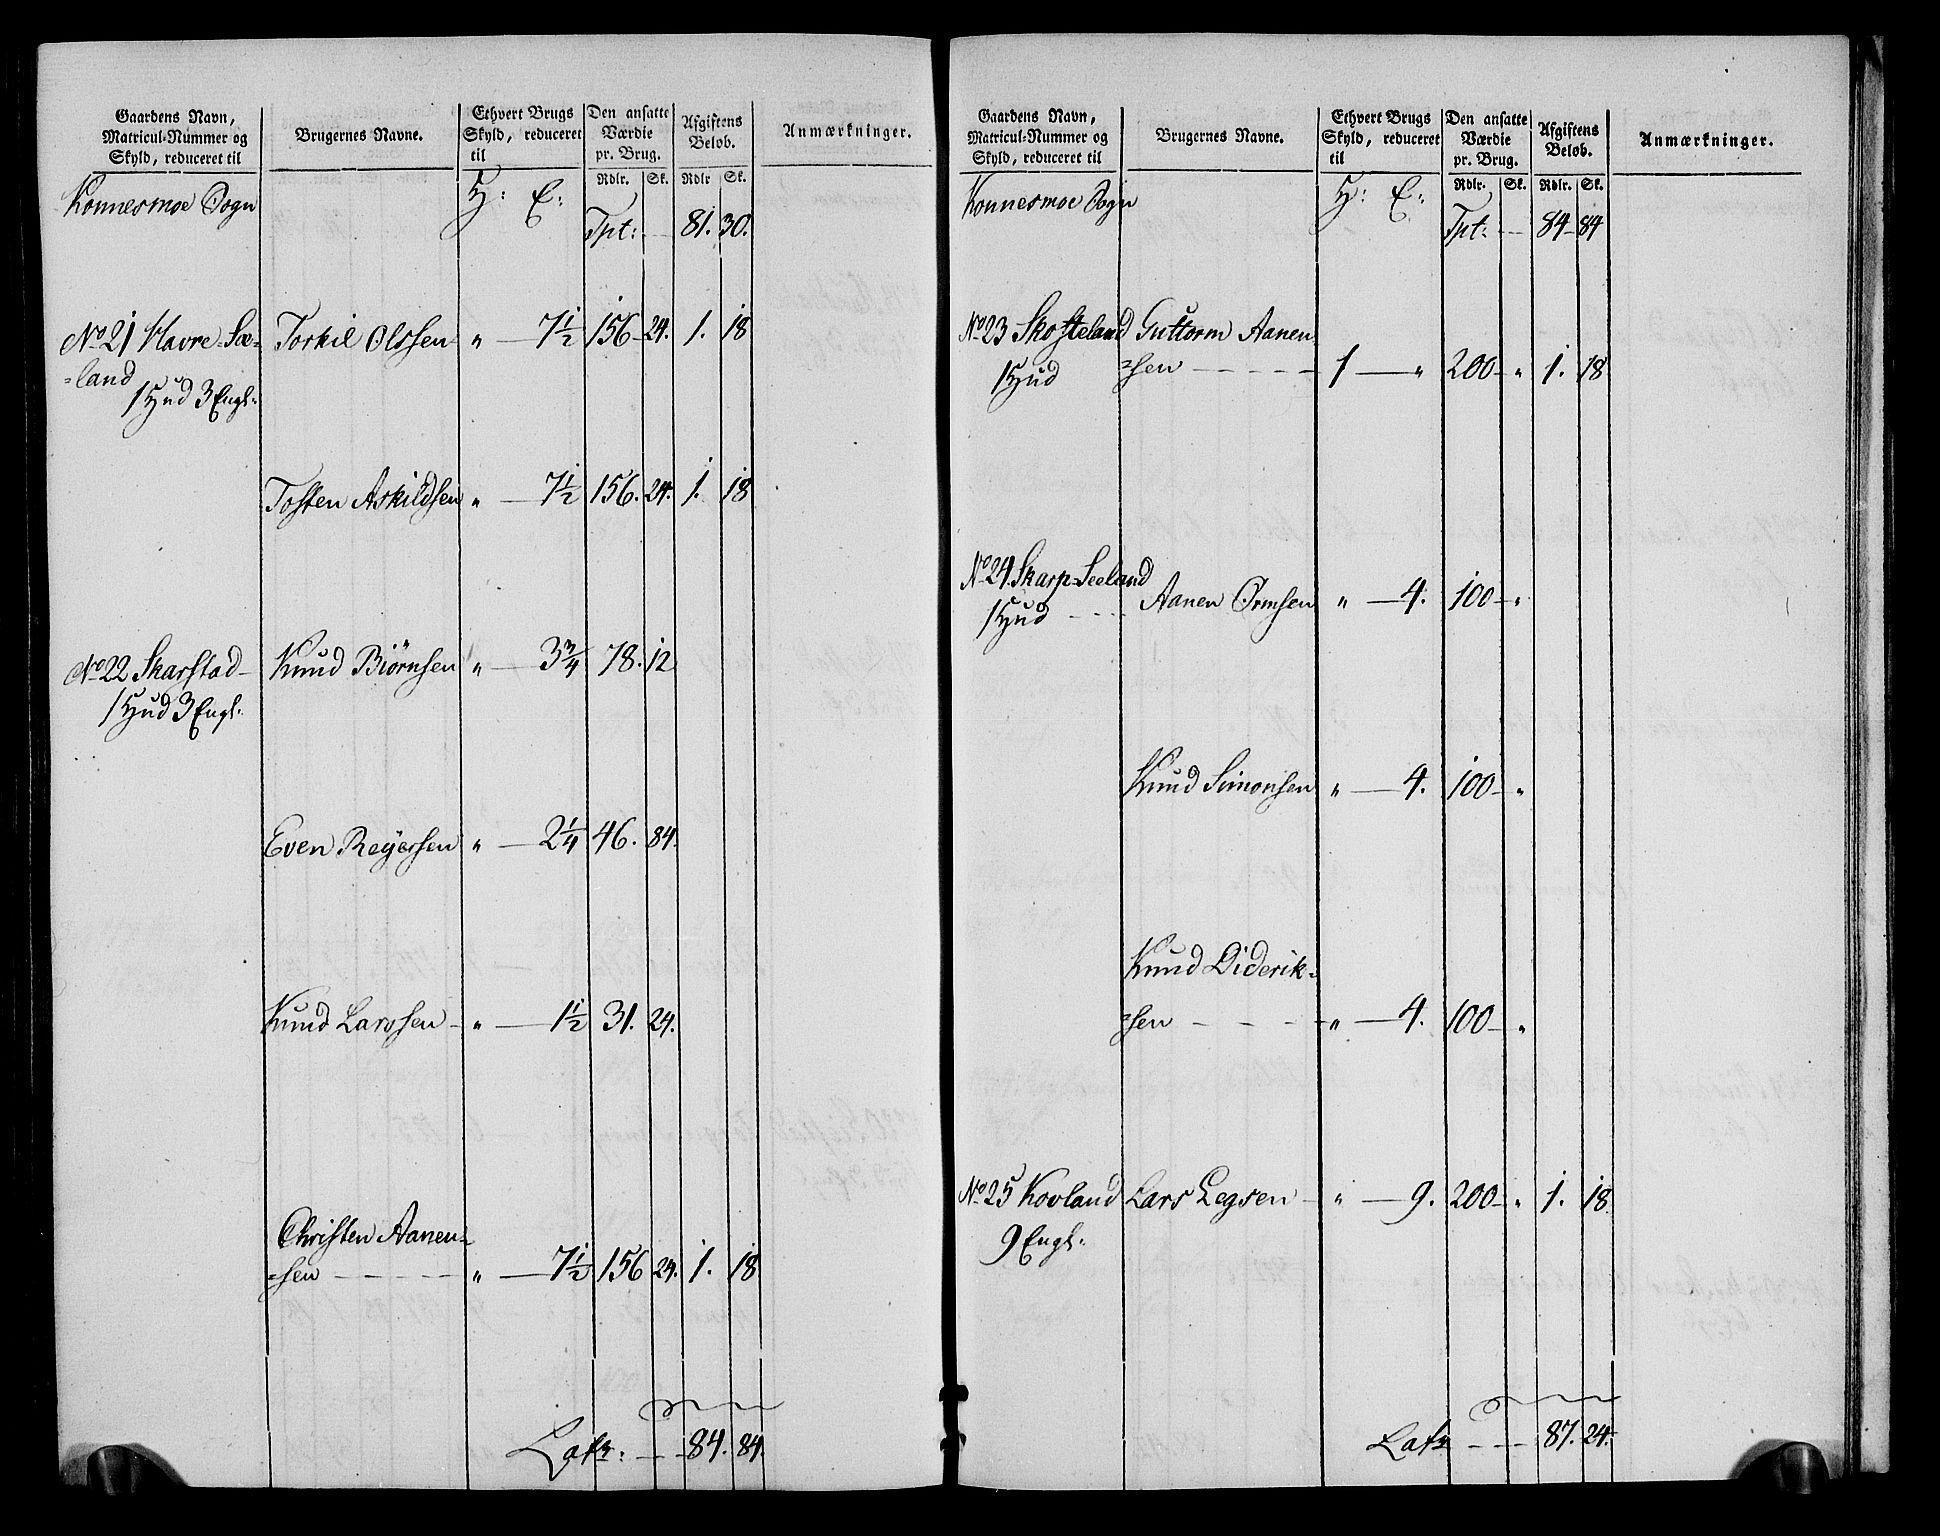 Gaardens Navn,
Matricul-Nummer og
Skyld, reduceret til
Brugernes Navne.
Ethvert Brugs
Skyld, reduceret
til
Den ansatte
Værdie
pr. Brug.
Afgiftens
Beløb.
Anmærkninger.
Rdlr. Sk. Rdlr Sk.
Konnesmoe Sogn H: E:
Tpt: — 81. 30.
No 21 Havre-Sæ- Torkil Olssen " — 7 1/2 156 - 24. 1. 18
=land
1 Hud 3 Engl:
Tosten Askildsen " — 7 1/2 156. 24. 1. 18
No 22 Skarstad Knud Biörnsen " — 3 3/4 78. 12
1 Hud 3 Engl:
Even Reyersen " — 2 1/4 46. 84.
Knud Larssen " — 1 1/2 31. 24.
Christen Aanen=
=sen — — — " — 7 1/2 156 24. 1. 18
Latr: — 84. 84.
Gaardens Navn,
Matricul-Nummer og
Skyld, reduceret til
Brugernes Navne.
Ethvert Brugs
Skyld, reduceret
til
Den ansatte
Værdie
pr. Brug.
Afgiftens
Beløb.
Anmærkninger.
Rdlr. Sk. Rdlr. Sk.
Konnesmoe Sogn H: E:
Tpt: — 84 - 84
No 23 Skofteland Guttorm Aanen
1 Hud =sen — — — 1 — " 200 - " 1. 18
No 24. Skarp-Seeland
1 Hud — Aanen Ormsen " — 4. 100 - "
Knud Simonsen " — 4. 100 - "
Knud Diderik=
=sen — — — " — 4. 100 - "
No 25 Kovland Lars Legsen " — 9. 200 - " 1. 18
9 Engl:
Latr — 87. 24.